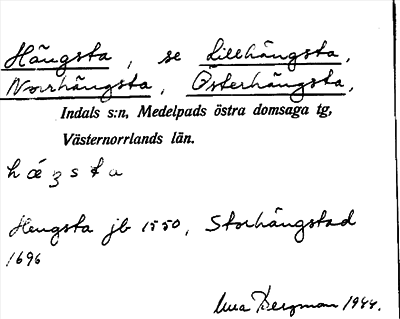 Hängsta, se Lillhängsta,
Norrhängsta, Österhängsta,
Indals s:n, Medelpads östra domsaga tg,
Västernorrlands län.
Hengsta jb 1550, Storhängstad
1696
Bergman 1944.